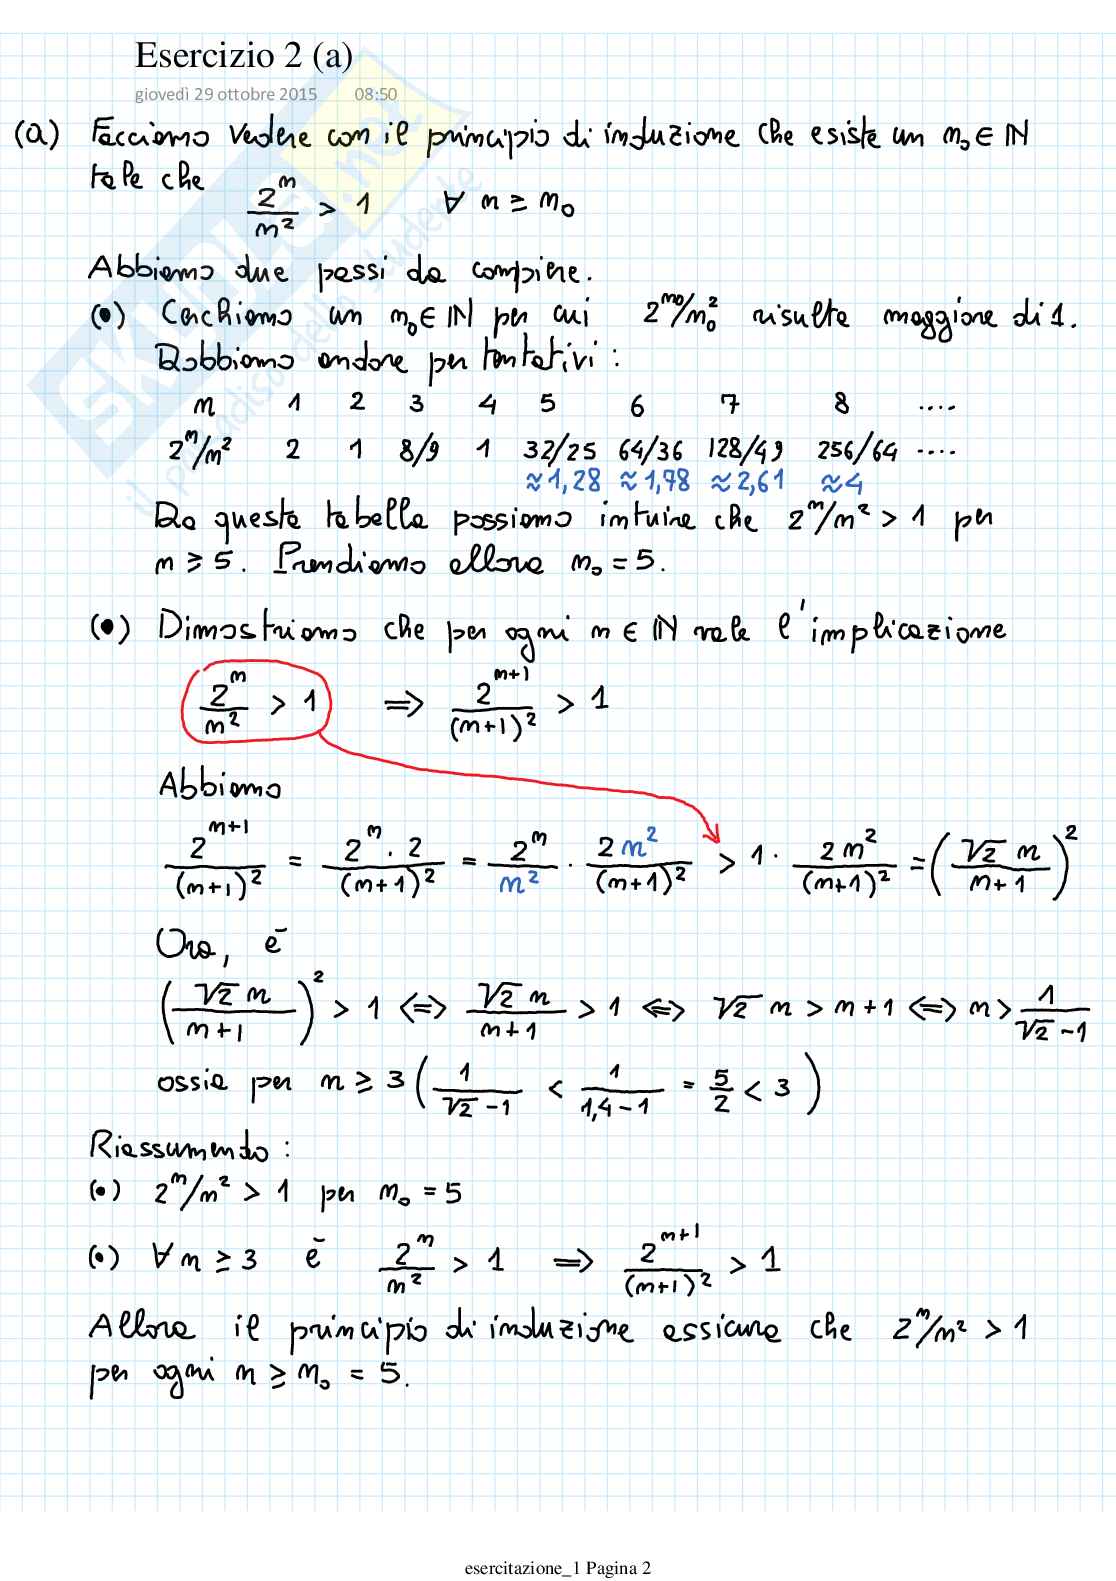 Esercizio 2 (a)
giovedì 29 ottobre 2015 08:50
(a) Facciamo vedere con il principio di induzione che esiste un n₀ ∈ ℕ
tale che 2^n/n² > 1 ∀ n ≥ n₀
Abbiamo due passi da compiere.
(•) Cerchiamo un n₀ ∈ ℕ per cui 2^n₀/n₀² risulta maggiore di 1.
Dobbiamo andare per tentativi :
n 1 2 3 4 5 6 7 8 ....
2^n/n² 2 1 8/9 1 32/25 64/36 128/49 256/64 ....
≈1,28 ≈1,78 ≈2,61 ≈4
Da questa tabella possiamo intuire che 2^n/n² > 1 per
n ≥ 5. Prendiamo allora n₀ = 5.
(•) Dimostriamo che per ogni n ∈ ℕ vale l'implicazione
2^n/n² > 1 ⟹ 2^(n+1)/(n+1)² > 1
Abbiamo
2^(n+1)/(n+1)² = 2^n · 2/(n+1)² = 2^n/n² · 2n²/(n+1)² > 1 · 2n²/(n+1)² = (√2 n/(n+1))²
Ora, è
(√2 n/(n+1))² > 1 ⟺ √2 n/(n+1) > 1 ⟺ √2 n > n+1 ⟺ n > 1/(√2 -1)
ossia per n ≥ 3 (1/(√2 -1) < 1/(1,4 -1) = 5/2 < 3)
Riassumendo :
(•) 2^n/n² > 1 per n₀ = 5
(•) ∀ n ≥ 3 è 2^n/n² > 1 ⟹ 2^(n+1)/(n+1)² > 1
Allora il principio di induzione assicura che 2^n/n² > 1
per ogni n ≥ n₀ = 5.
esercitazione_1 Pagina 2
SKUOLA.NET
il paradiso dello studente